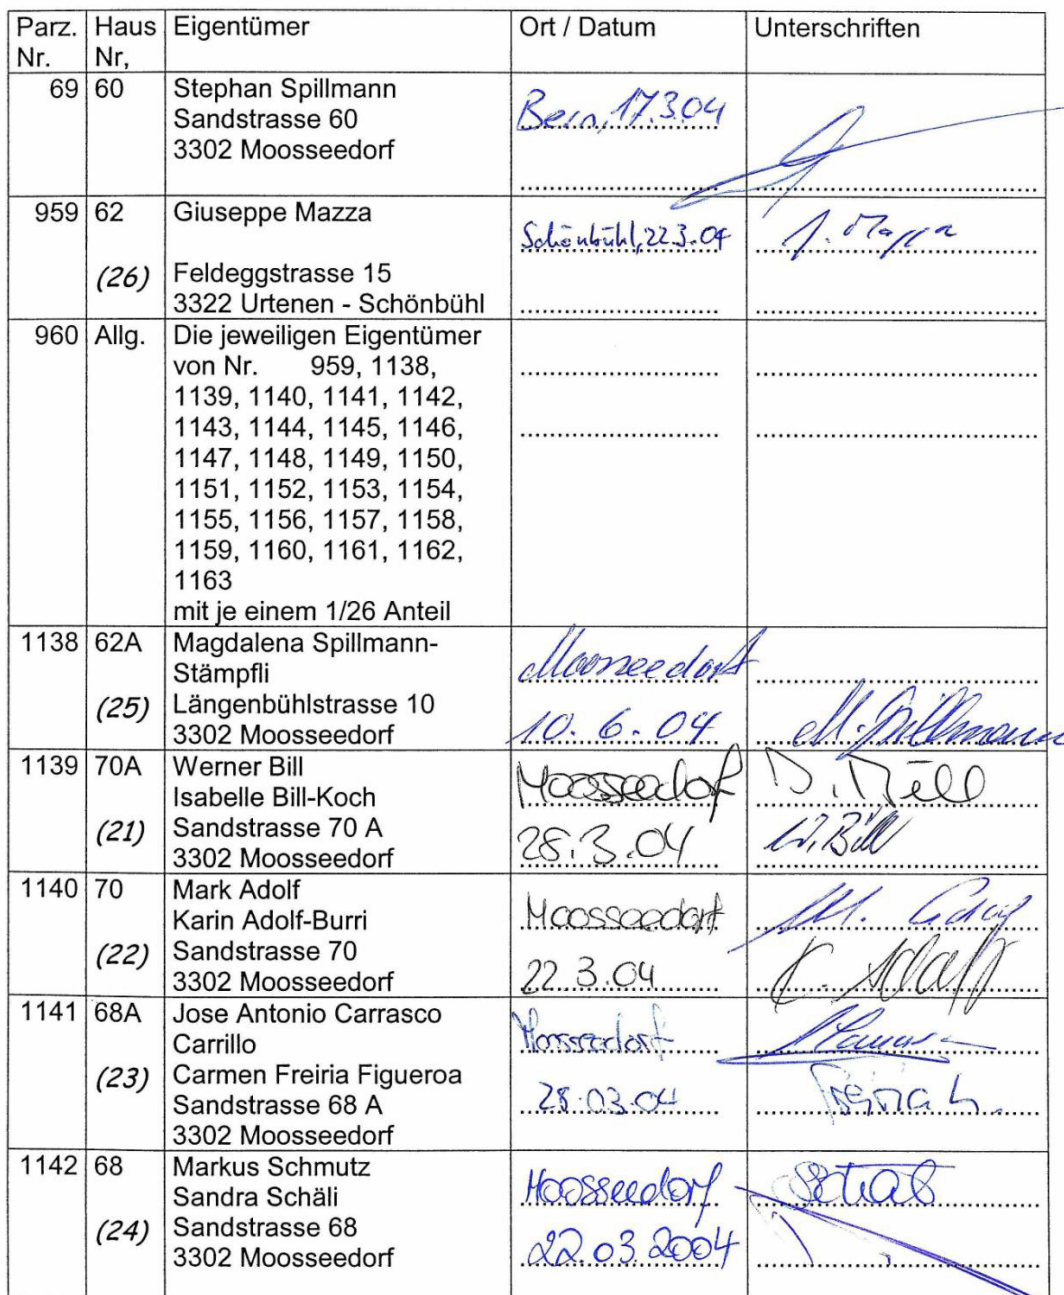 Parz. Nr. Haus Nr, Eigentümer Ort / Datum Unterschriften
69 60 Stephan Spillmann
Sandstrasse 60
3302 Moosseedorf
Bern, 17.3.04
959 62 Giuseppe Mazza
(26) Feldeggstrasse 15
3322 Urtenen - Schönbühl
Schönbühl, 22.3.04
960 Allg. Die jeweiligen Eigentümer
von Nr. 959, 1138,
1139, 1140, 1141, 1142,
1143, 1144, 1145, 1146,
1147, 1148, 1149, 1150,
1151, 1152, 1153, 1154,
1155, 1156, 1157, 1158,
1159, 1160, 1161, 1162,
1163
mit je einem 1/26 Anteil
1138 62A Magdalena Spillmann-
Stämpfli
(25) Längenbühlstrasse 10
3302 Moosseedorf
Moosseedorf
10. 6. 04 M. Spillmann
1139 70A Werner Bill
Isabelle Bill-Koch
(21) Sandstrasse 70 A
3302 Moosseedorf
Moosseedorf
28.3.04 W. Bill
1140 70 Mark Adolf
Karin Adolf-Burri
(22) Sandstrasse 70
3302 Moosseedorf
Moosseedorf M. Adolf
22.3.04 K. Adolf
1141 68A Jose Antonio Carrasco
Carrillo
(23) Carmen Freiria Figueroa
Sandstrasse 68 A
3302 Moosseedorf
Moosseedorf
28.03.04
1142 68 Markus Schmutz
Sandra Schäli
(24) Sandstrasse 68
3302 Moosseedorf
Moosseedorf
22.03.2004